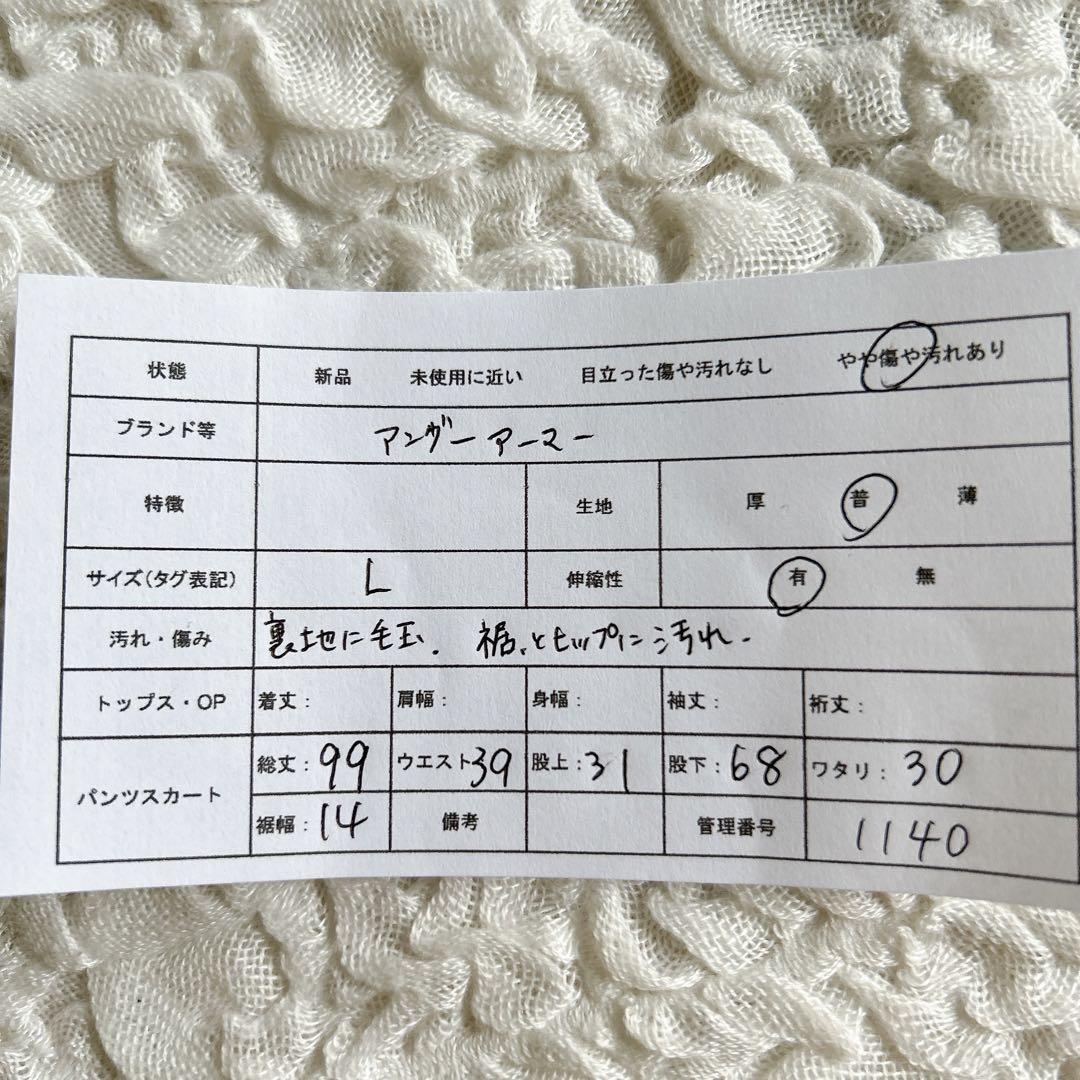 状態 新品 未使用に近い 目立った傷や汚れなし やや傷や汚れあり
ブランド等 アンダーアーマー
特徴 生地 厚 普 薄
サイズ(タグ表記) L 伸縮性 有 無
汚れ・傷み 裏地に毛玉. 裾、とヒップに汚れ.
トップス・OP 着丈: 肩幅: 身幅: 袖丈: 裄丈:
パンツスカート 総丈:99 ウエスト39 股上:31 股下:68 ワタリ:30
裾幅:14 備考 管理番号 1140